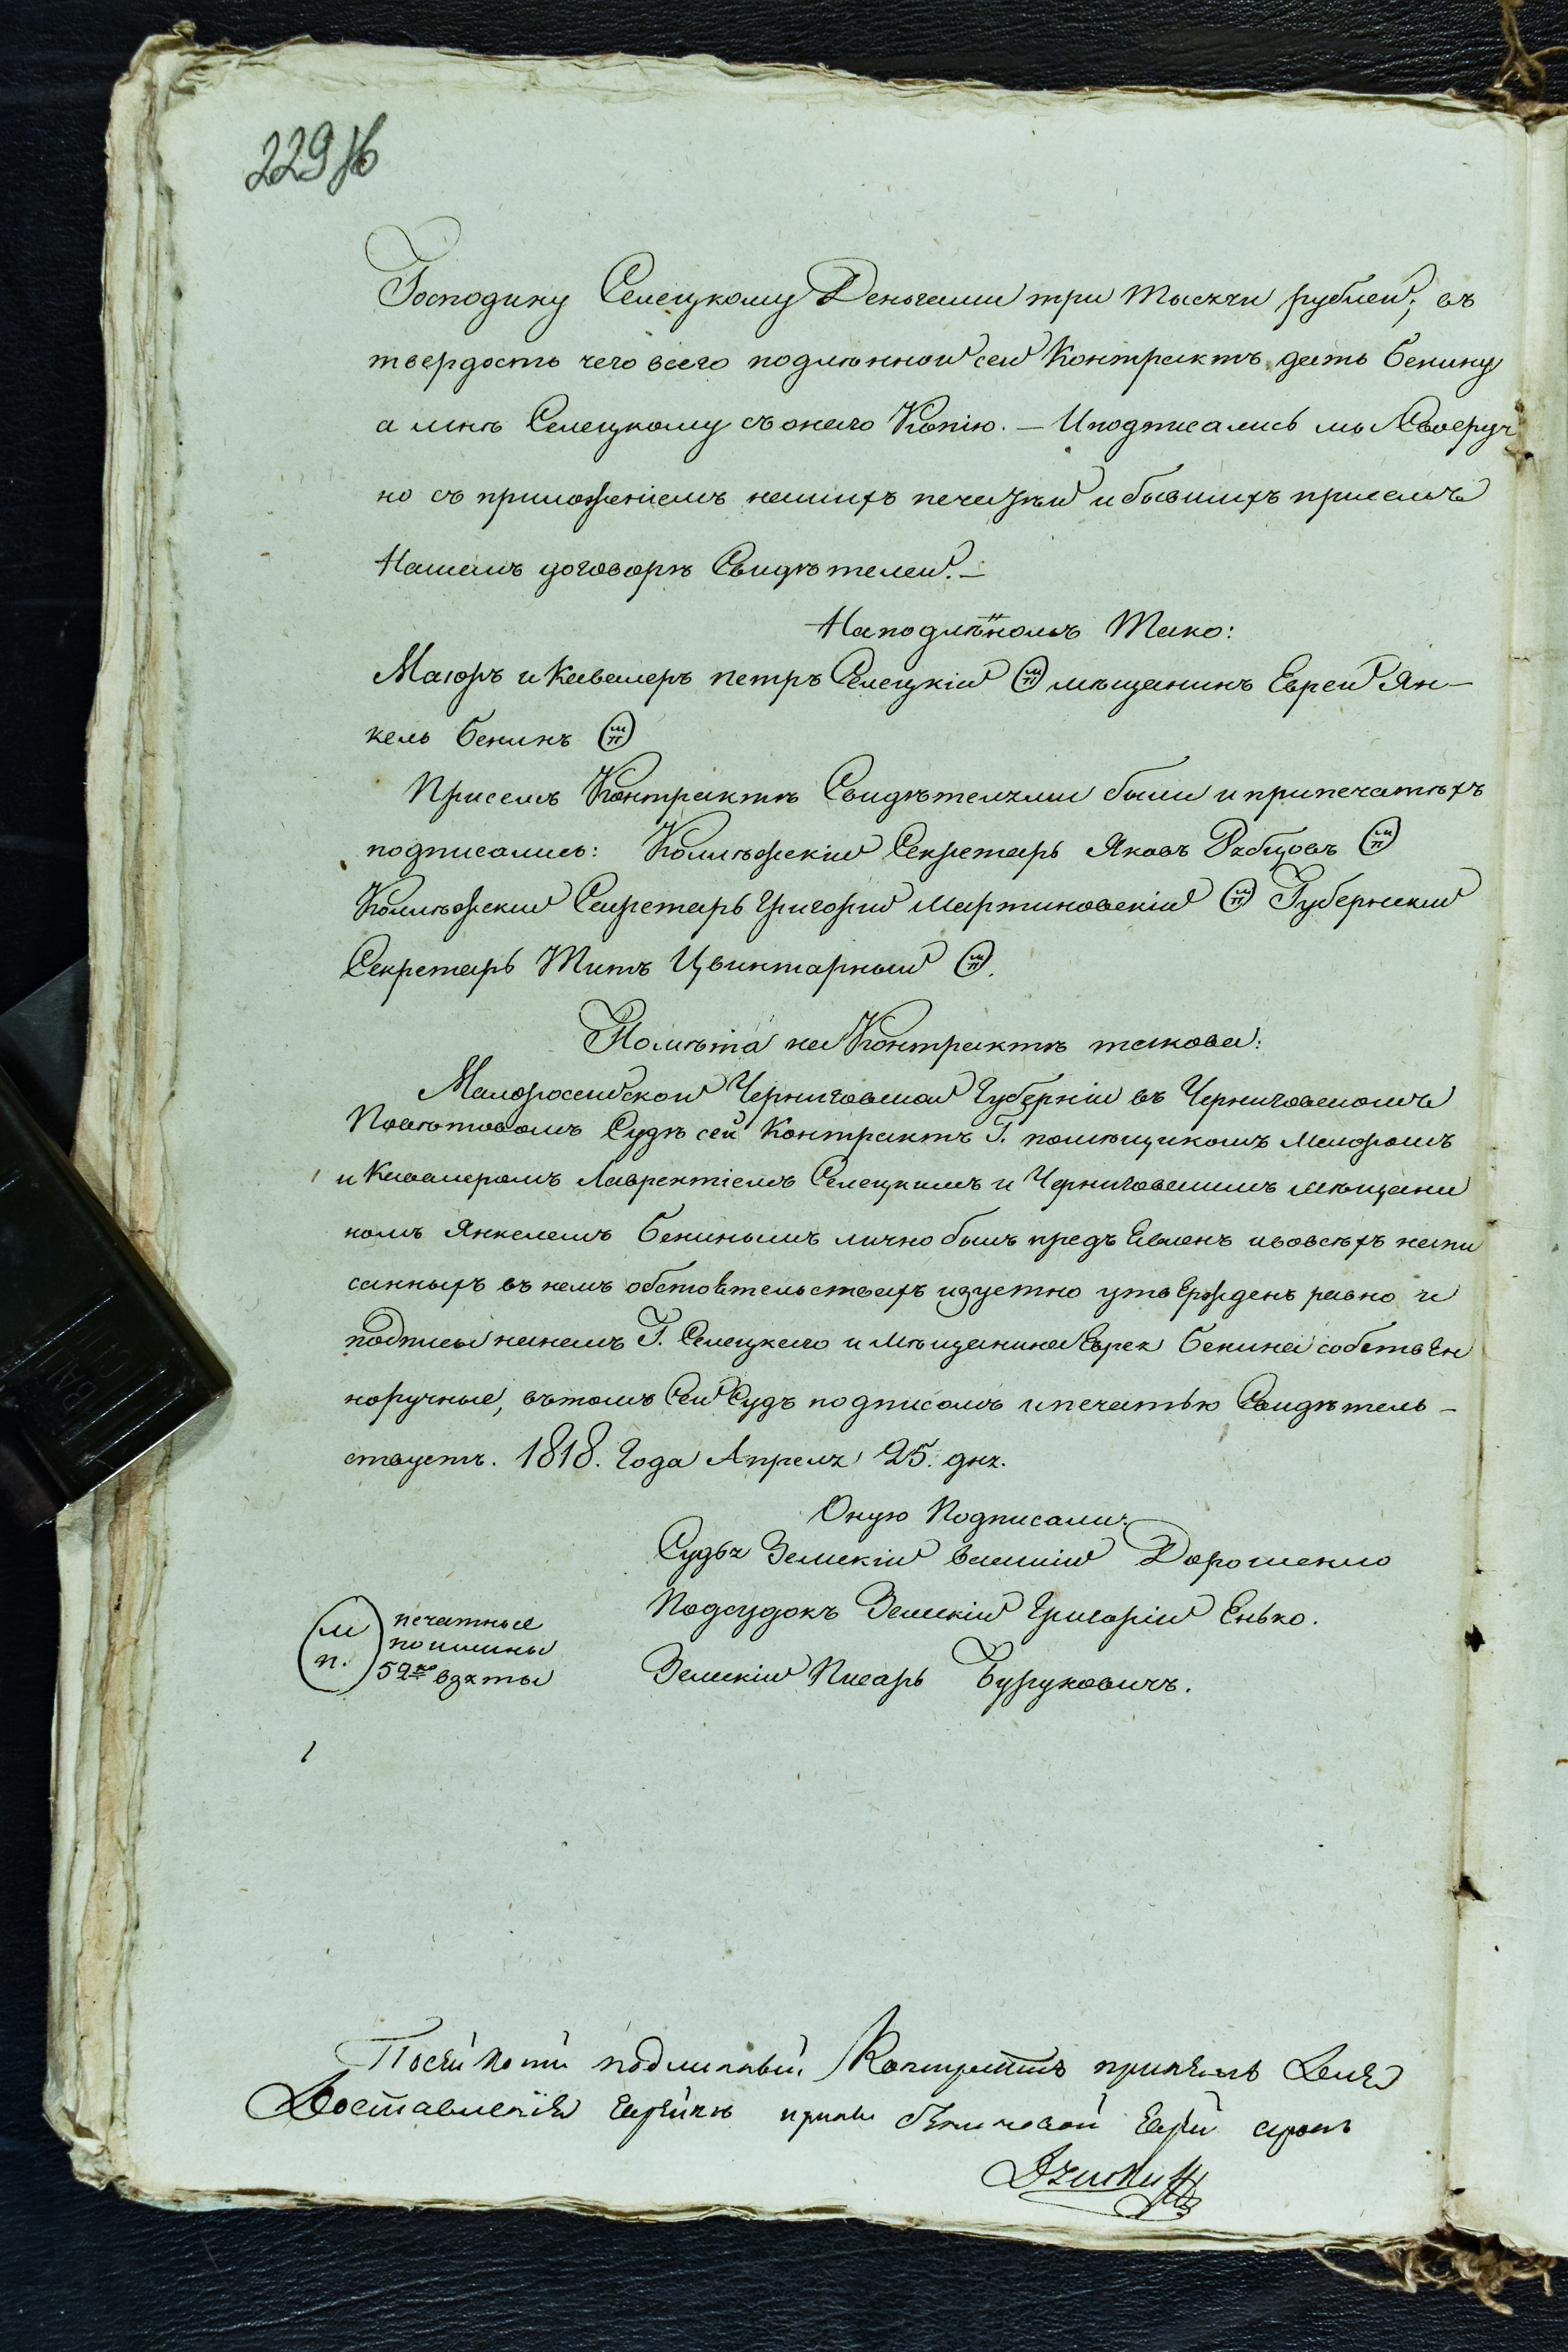 229 Об
Господину Селецкому Деньгами три тысячи рублей; въ
твердость чего всего подлѣнной сей Контрактъ дать Бенину
а мнѣ Селецкому съ онаго Копію. — И подписались мы Своеруч
но съ приложеніемъ нашихъ печатѣй и бывшихъ присемъ
Нашемъ договорѣ Свидѣтелей. —
На подлѣнномъ Тако:
Маіоръ и Кавалеръ петръ Селецкій МП мѣщанинъ Еврей Ян-
кель Бенинъ МП
Присемъ Контрактѣ Свидѣтелями были и припечатѣхъ
подписались: Колѣжскій Секретарь Яковъ Рябцовъ МП
Колѣжский Секретарь Григорий Мартиновскій МП Губернский
Секретарь Титъ Цвинтарный МП.
Помѣта на Контрактѣ такова:
Малоросийской Черниговской Губерніи въ Черниговскомъ
Повѣтовомъ Судѣ сей Контрактъ Г. помѣщикомъ Маіоромъ
и Кавалеромъ Лаврентіемъ Селецкимъ и Черниговскимъ мѣщани
номъ Янкелемъ Бенинымъ лично былъ предъ Евленъ ивовсѣхъ напи
санныхъ въ немъ обстоятельствахъ изустно утвержденъ равно и
подписы нанемъ Г. Селецкаго и Мѣщанина Еврея Бенина собствен
норучные, вътомъ Сей Судъ подписомъ и печатью Свидѣтель-
ствуетъ. 1818. Года Апреля 25. дня.
Оную Подписали:
Судья Земскій Василій Дорошенко
Подсудокъ Земскій Григорій Енько.
Земскій Писарь Бурукович.
М п. печатные
пошлины
52 ко взяты
Посей копіи подлинный Контрактъ принялъ Для
Доставленія Еврейкѣ Бениновой Еврей